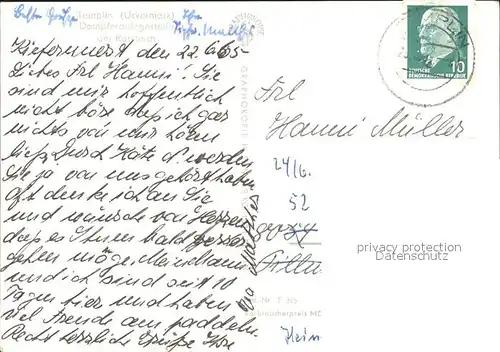 Beste Grüße Ihre
Templin (Uckermark)
Dampferanlegestelle
Kiefernnest den 22.6.65
Liebes Frl Hanni! Sie
sind mir hoffentlich
nicht böse daß ich gar
nichts von mir hören
ließ. Durch Käte werden
Sie ja von uns gehört haben
oft denke ich an Sie
und wünsche von Herzen
daß es Ihnen bald besser
gehen möge. Mein Mann
und ich sind seit 10
Tagen hier und haben
viel Freude am paddeln.
Recht herzliche Grüße Ihre
GRAPHOKOPIE
PLIN
10
DEUTSCHE
DEMOKRATISCHE REPUBLIK
Frl
Hanni Müller
24/6.
52
privacy protection
watermark
Nr. T 305
Verbraucherpreis MD
Heim